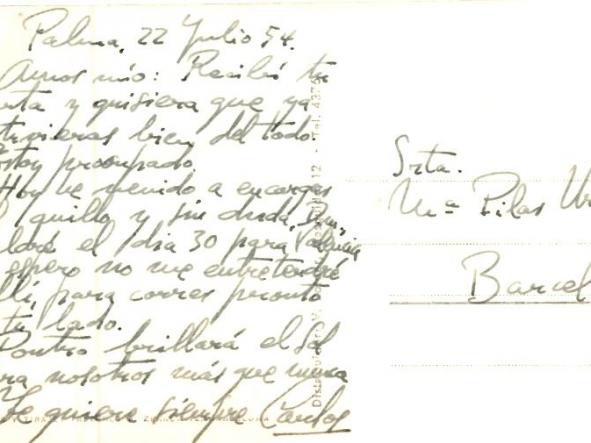 Palma, 22 Julio 54.
Amor mío: Recibí tu
rta y quisiera que ya
tuvieras bien del todo.
stoy preocupado.
Hoy he venido a encargar
l y sin duda, Dios,
el día 30 para Valencia
espero no me entretendré
llí, para correr pronto
tu lado.
Pontro brillará el Sol
ra nosotros más que nunca
Te quiere siempre Carlos
Srta.
Mª Pilar Ur
Barcel